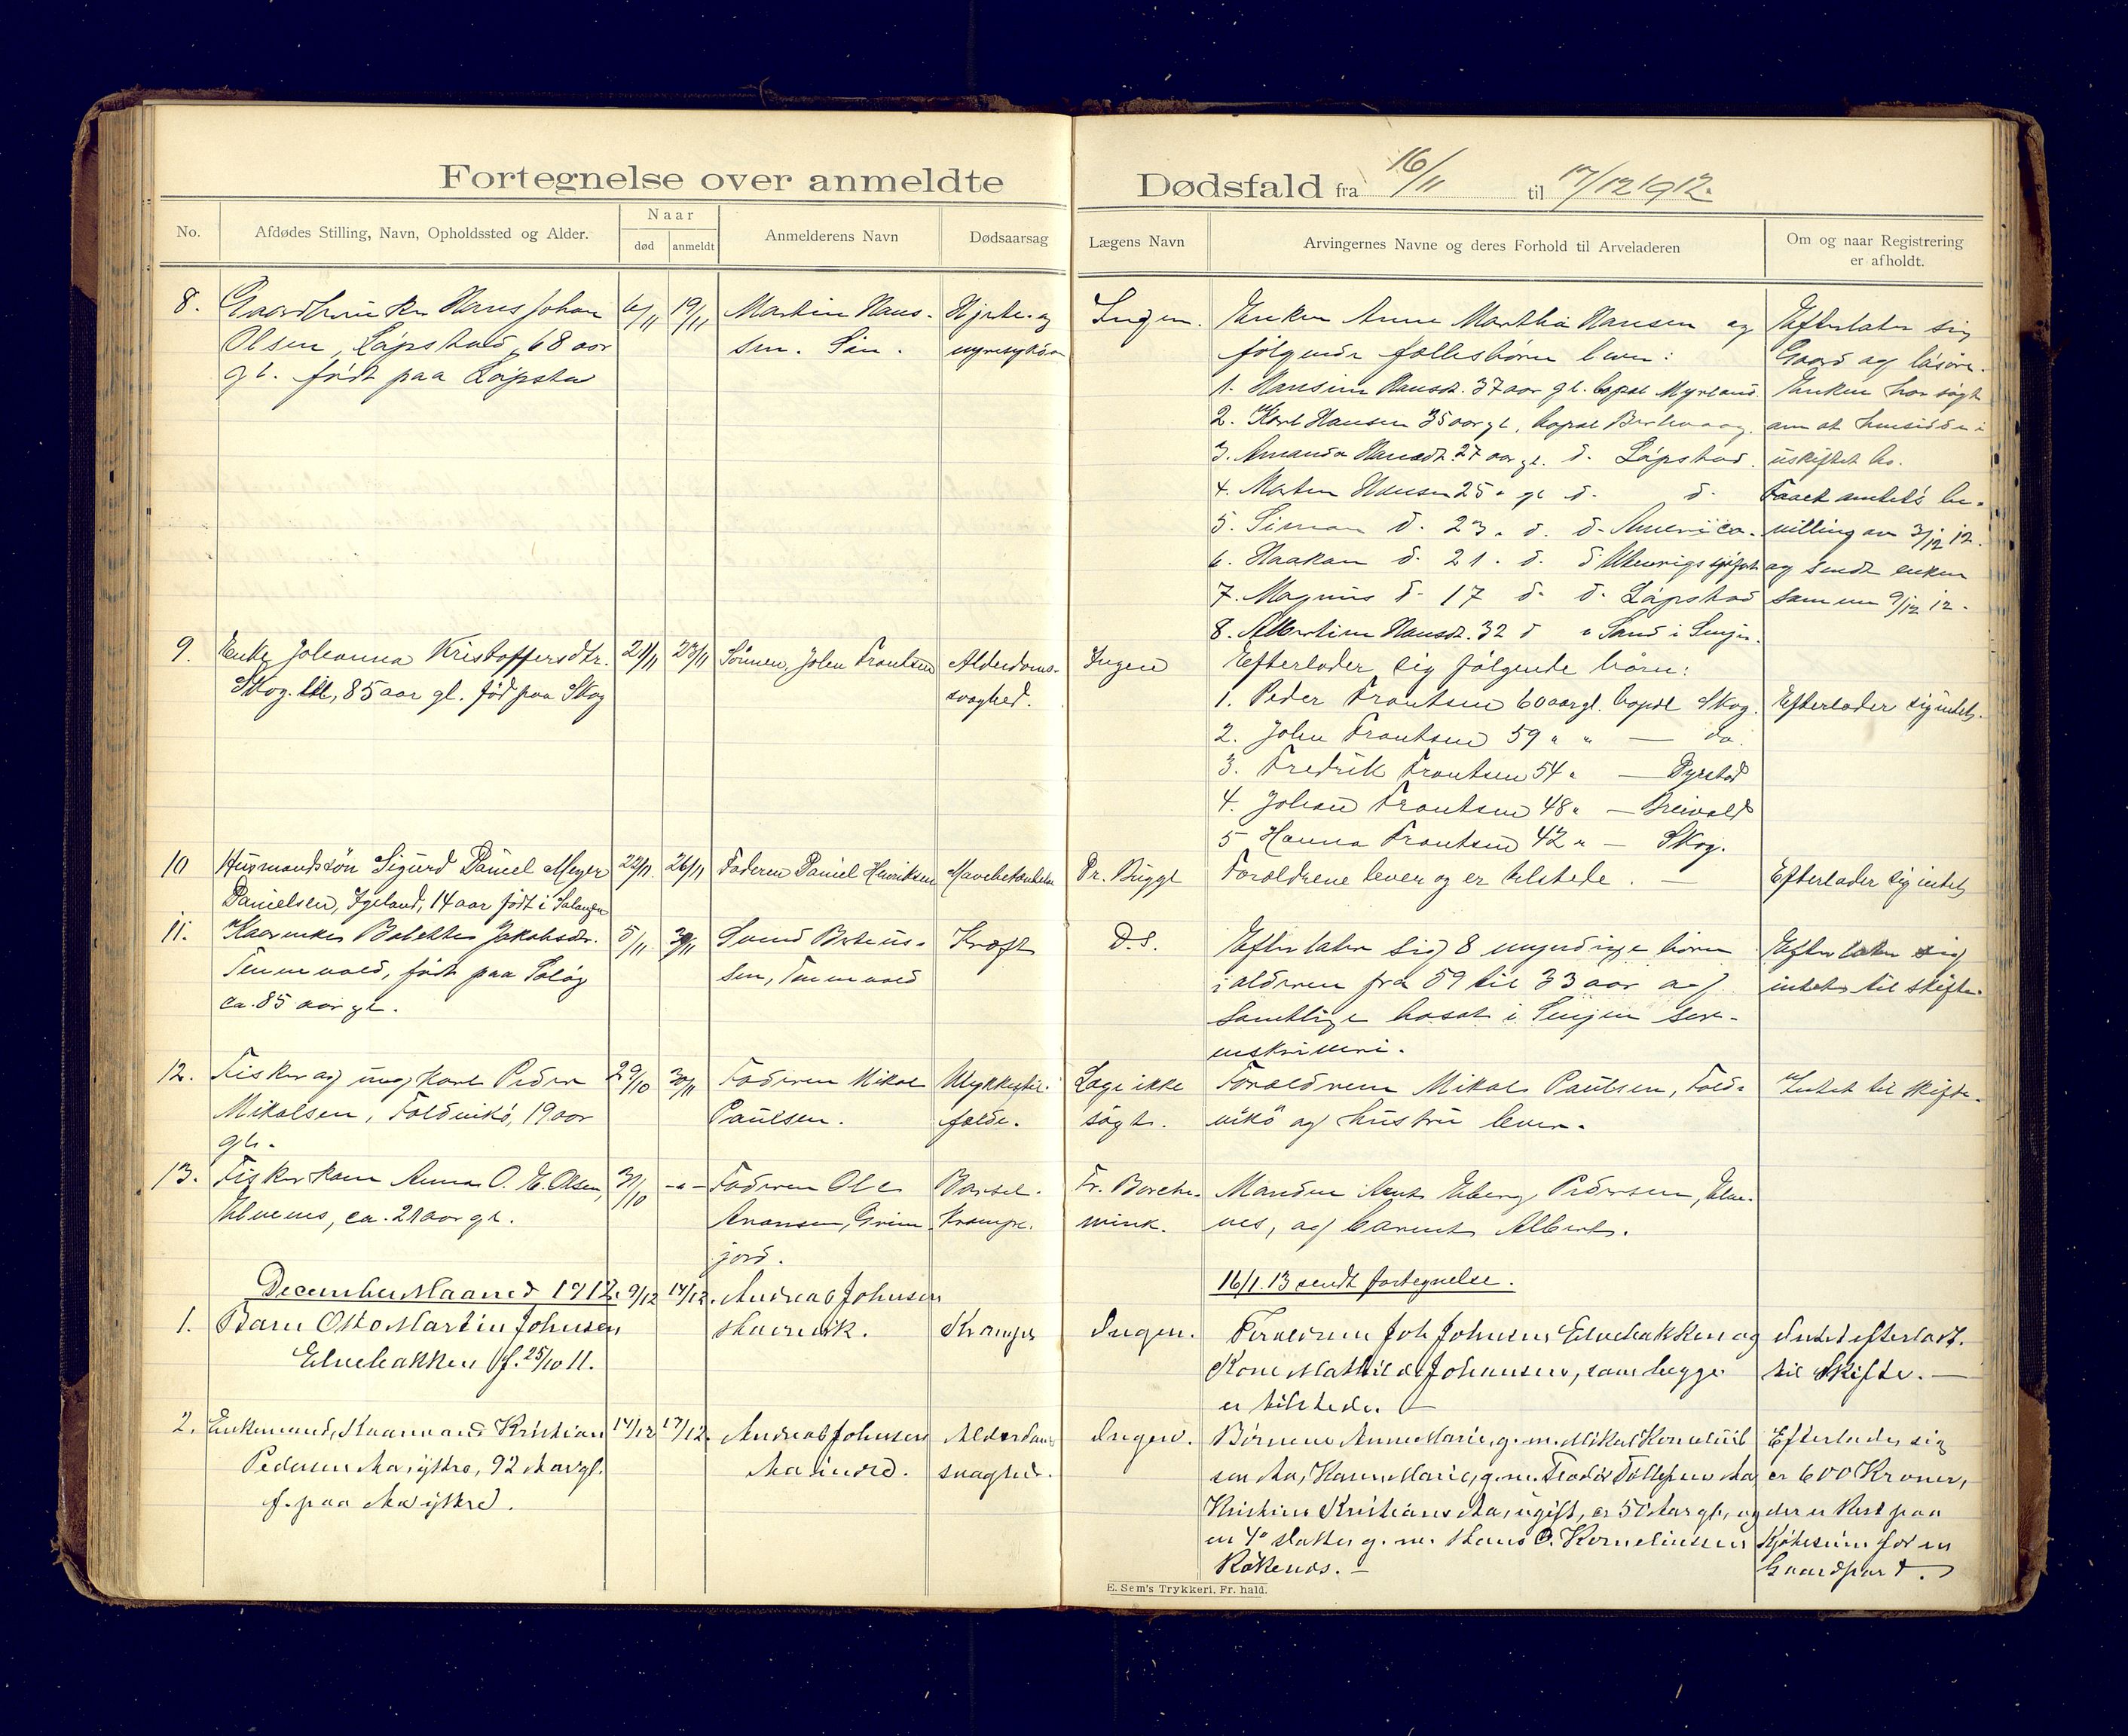 Fortegnelse over anmeldte
Dødsfald fra 16/11 til 17/12 1912.
No.
Afdødes Stilling, Navn, Opholdssted og Alder.
Naar
død
anmeldt
Anmelderens Navn
Dødsaarsag
Lægens Navn
Arvingernes Navne og deres Forhold til Arveladeren
Om og naar Registrering
er afholdt.
8. Hans Johan 6/11 19/11 Martin Han- Hjerte- og Ingen. Enken Anne Martha Hansen og Efterlater sig
Olsen, Løpstad, 68 aar sen. Søn. nyresykdom følgende fællesbørn : Gaard og løsøre.
gl. født paa Løpstad 1. Hansine Hansdt. 37 aar gl. bopæl Myrland. Enken har søgt
2. Karl Hansen 35 aar gl. bopæl om at hensidde i
3. Amanda Hansdt. 27 aar gl. d. Løpstad. uskiftet bo.
4. Martin Hansen 25 " gl d. d. Faaet amtets be-
5. Simon d. 23 " d. d. America. villing av 3/12 12.
6. Haakon d. 21 . d. d. og sendt enken
7. Magnus d. 17 d. d. Løpstad samme 9/12 12.
8. Albertine Hansdt. 32 d " Sand i Senjen.
9. Enke Johanna Kristoffersdtr. 21/11 23/11 Sønnen, John Frantsen Alderdoms- Ingen Efterlader sig følgende børn:
Skog. 85 aar gl. född paa Skog svaghed. 1. Peder Frantsen 60 aar gl. bopæl Skog. Efterlader sig intet.
2. John Frantsen 59 " " — do.
3. Fredrik Frantsen 54 " — Dyrstad
4. Johan Frantsen 48 " — Breivold
5 Hanna Frantsen 42 " — Skog.
10 Husmandssøn Sigurd Daniel Meyer 22/11 26/11 Faderen Daniel Henriksen Mavebetændelse Dr. Bugge Forældrene lever og er tilstede. — Efterlader sig intet
Danielsen, Igeland, 14 aar født i Salangen
11. Kaarenke Bolette Jakobsdtr. 5/11 Svend Kræft D.S. Efterlater sig 8 børn Efterlater sig
Tennevold, født paa sen, Tennevold i alderen fra 59 til 33 aar og intet til skifte.
ca. 85 aar gl. samtlige bosat i Senjen sore-
nskriveri.
12. Fisker og ungkarl Peder 29/10 30/11 Faderen Mikal Ulykkestil- Læge ikke Forældrene Mikal Paulsen, Fold- Intet til skifte.
Mikalsen, Foldvik, 19 aar Paulsen. fælde. søgt. vik og hustru lever.
gl.
13. Fiskerkone Anna O. E. Olsen, 31/10 -"- Faderen Ole Barsel- Fr. Borch- Manden Elve-
Elvenes, ca. 21 aar gl. Aronsen, Grim- krampe. wink. nes, og barnet Albert.
jord.
December Maaned 1912. 9/12 14/12. Andreas Johnsen 16/1. 13 sendt fortegnelse.
1. Barn Otto Martin Johnsen Havnvik. Krampe Ingen. Forældrene Joh Johnsen Elvebakken og Intet efterladt.
Elvebakken f. 25/10 11. Kone Mathilde Johansen, som begge til Skifte. —
er tilstede. —
2. Enkemand, Kaarmand Kristian 14/12 17/12. Andreas Johnsen Alderdoms Ingen. Børnene Anne Marie, g. m. Mikal Korneliüs Efterlader sig
Pedersen Aa ýttre, 92 Aar gl. Aa indre. svaghed. sen Aa, Karen Marie, g. m. Teodor Aa, ca 600 Kroner,
f. paa Aa ýttre. Kristine Kristians Aa, ugift, ca 50 Aar gl., og der er fæst paa
en 4de datter g. m. Hans O. Korneliussen Kjøbesum for en
Røkenes. — Gaardpart.
E. Sem's Trykkeri, Fr. hald.